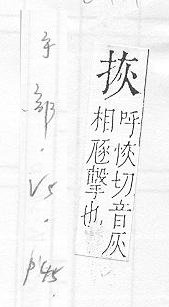 拻
呼恢切音灰
相豗擊也
手部.V5.P45.